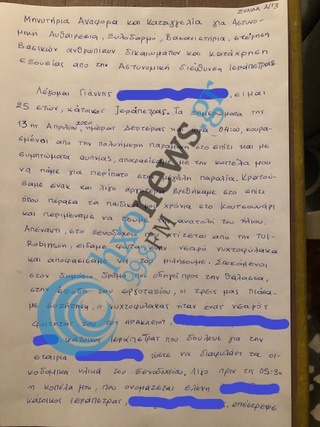 Σελίδα 1/13
Μηνυτήρια Αναφορα και Καταγγελία για Αστυνο-
μική Αυθαιρεσία, Ξυλοδαρμό, Βασανιστήρια, στέρηση
Βασικών ανθρωπίνων δικαιωμάτων και κατάχρηση
εξουσίας από την Αστυνομική διεύθυνση Ιεράπετρας
Λέγομαι Γιάννης είμαι
25 ετών, κάτοικος Ιεράπετρας. Τα ξημερώματα της
13 της Απριλίου, 2020 ημέρα Δευτέρας 04:00, κουρα-
σμένοι από την πολυήμερη παραμονή στο σπίτι και με
συμπτώματα αυπνίας, αποφασίσαμε με την κοπέλα μου
να πάμε για περίπατο στη παραλία. Κρατού-
σαμε έναν και λίγο αργότερα βρεθήκαμε στο σπίτι
όπου πέρασα τα παιδικά μου χρόνια στο Κουτσουνάρι
και περιμέναμε να δούμε ανατολή του ήλιου.
Απέναντι, στο ξενοδοχείο χτίζεται από την TUI-
Robinson, είδαμε νεαρό νυχτοφύλακα
και αποφασίσαμε να του μιλήσουμε. Στεκόμενοι
στον δημόσιο δρόμο που οδηγεί προς την θάλασσα,
στην είσοδο του εργοταξίου, οι τρεις μας πιάσα-
με συζήτηση. Ο νυχτοφύλακας ήταν ένας νεαρός
φοιτητής του ΤΕΙ Ηρακλείου,
κάτοικος Ιεράπετρας που δούλευε για την
εταιρία ώστε να διαφυλάει τα οι-
κοδομικά υλικά του ξενοδοχείου. Λίγο πριν τις 05:30
η κοπέλα μου, που ονομάζεται Ελένη
κάτοικος Ιεράπετρας, επέστρεψε
onlynews.gr
99.8 FM